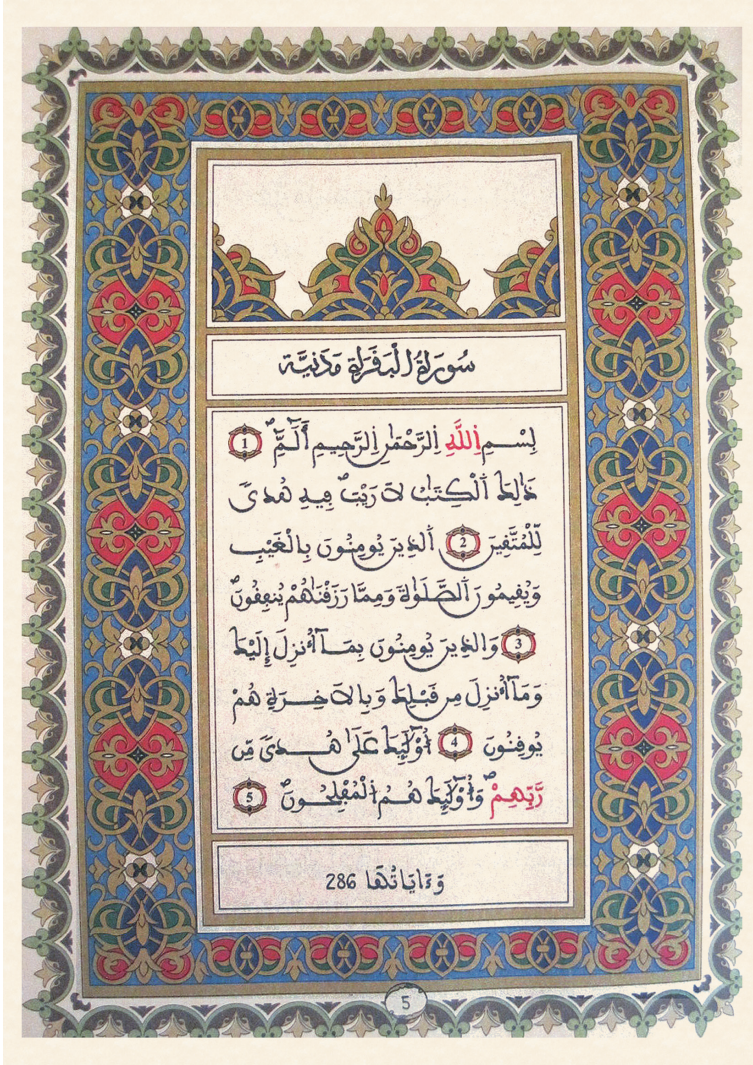 سُورَةُ الْبَقَرَةِ مَدَنِيَّة
بِسْمِ اِللَّهِ اِلرَّحْمَٰنِ اِلرَّحِيمِ أَلَٓمِّٓۖ 1
ذَٰلِكَ اَلْكِتَٰبُ لَا رَيْبَۖ فِيهِ هُدىَ
لِّلْمُتَّقِينَ 2 اَلذِينَ يُومِنُونَ بِالْغَيْبِ
وَيُقِيمُونَ اَلصَّلَوٰةَ وَمِمَّا رَزَقْنَٰهُمْ يُنفِقُونَۖ
3 وَالذِينَ يُومِنُونَ بِمَآ أُنزِلَ إِلَيْكَ
وَمَآ أُنزِلَ مِن قَبْلِكَ وَبِالَاخِرَةِ هُمْ
يُوقِنُونَ 4 أُوْلَٰٓئِكَ عَلَىٰ هُدىَ مِّن
رَّبِّهِمْۖ وَأُوْلَٰٓئِكَ هُمُ اُلْمُفْلِحُونَۖ 5
وَءَايَاتُهَا 286
5